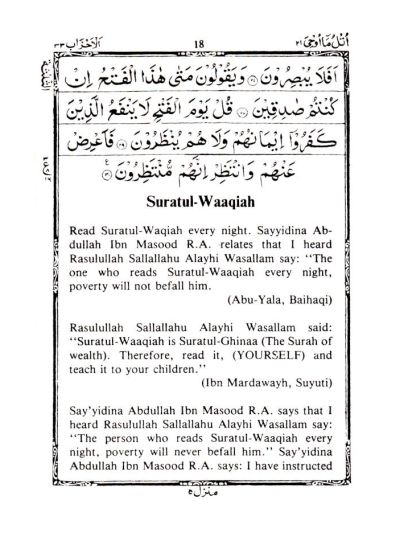 اتل ما اوحی ۲۱
18
الاحزاب ۳۳
اَفَلَا يُبْصِرُوْنَ ۝ وَيَقُوْلُوْنَ مَتٰى هٰذَا الْفَتْحُ اِنْ
كُنْتُمْ صٰدِقِيْنَ ۝ قُلْ يَوْمَ الْفَتْحِ لَا يَنْفَعُ الَّذِيْنَ
كَفَرُوْٓا اِيْمَانُهُمْ وَلَا هُمْ يُنْظَرُوْنَ ۝ فَاَعْرِضْ
عَنْهُمْ وَانْتَظِرْ اِنَّهُمْ مُّنْتَظِرُوْنَ ۝
Suratul-Waaqiah
Read Suratul-Waqiah every night. Sayyidina Ab-
dullah Ibn Masood R.A. relates that I heard
Rasulullah Sallallahu Alayhi Wasallam say: “The
one who reads Suratul-Waaqiah every night,
poverty will not befall him.
(Abu-Yala, Baihaqi)
Rasulullah Sallallahu Alayhi Wasallam said:
“Suratul-Waaqiah is Suratul-Ghinaa (The Surah of
wealth). Therefore, read it, (YOURSELF) and
teach it to your children.”
(Ibn Mardawayh, Suyuti)
Say’yidina Abdullah Ibn Masood R.A. says that I
heard Rasulullah Sallallahu Alayhi Wasallam say:
“The person who reads Suratul-Waaqiah every
night, poverty will never befall him.” Say’yidina
Abdullah Ibn Masood R.A. says: I have instructed
منزل ۵